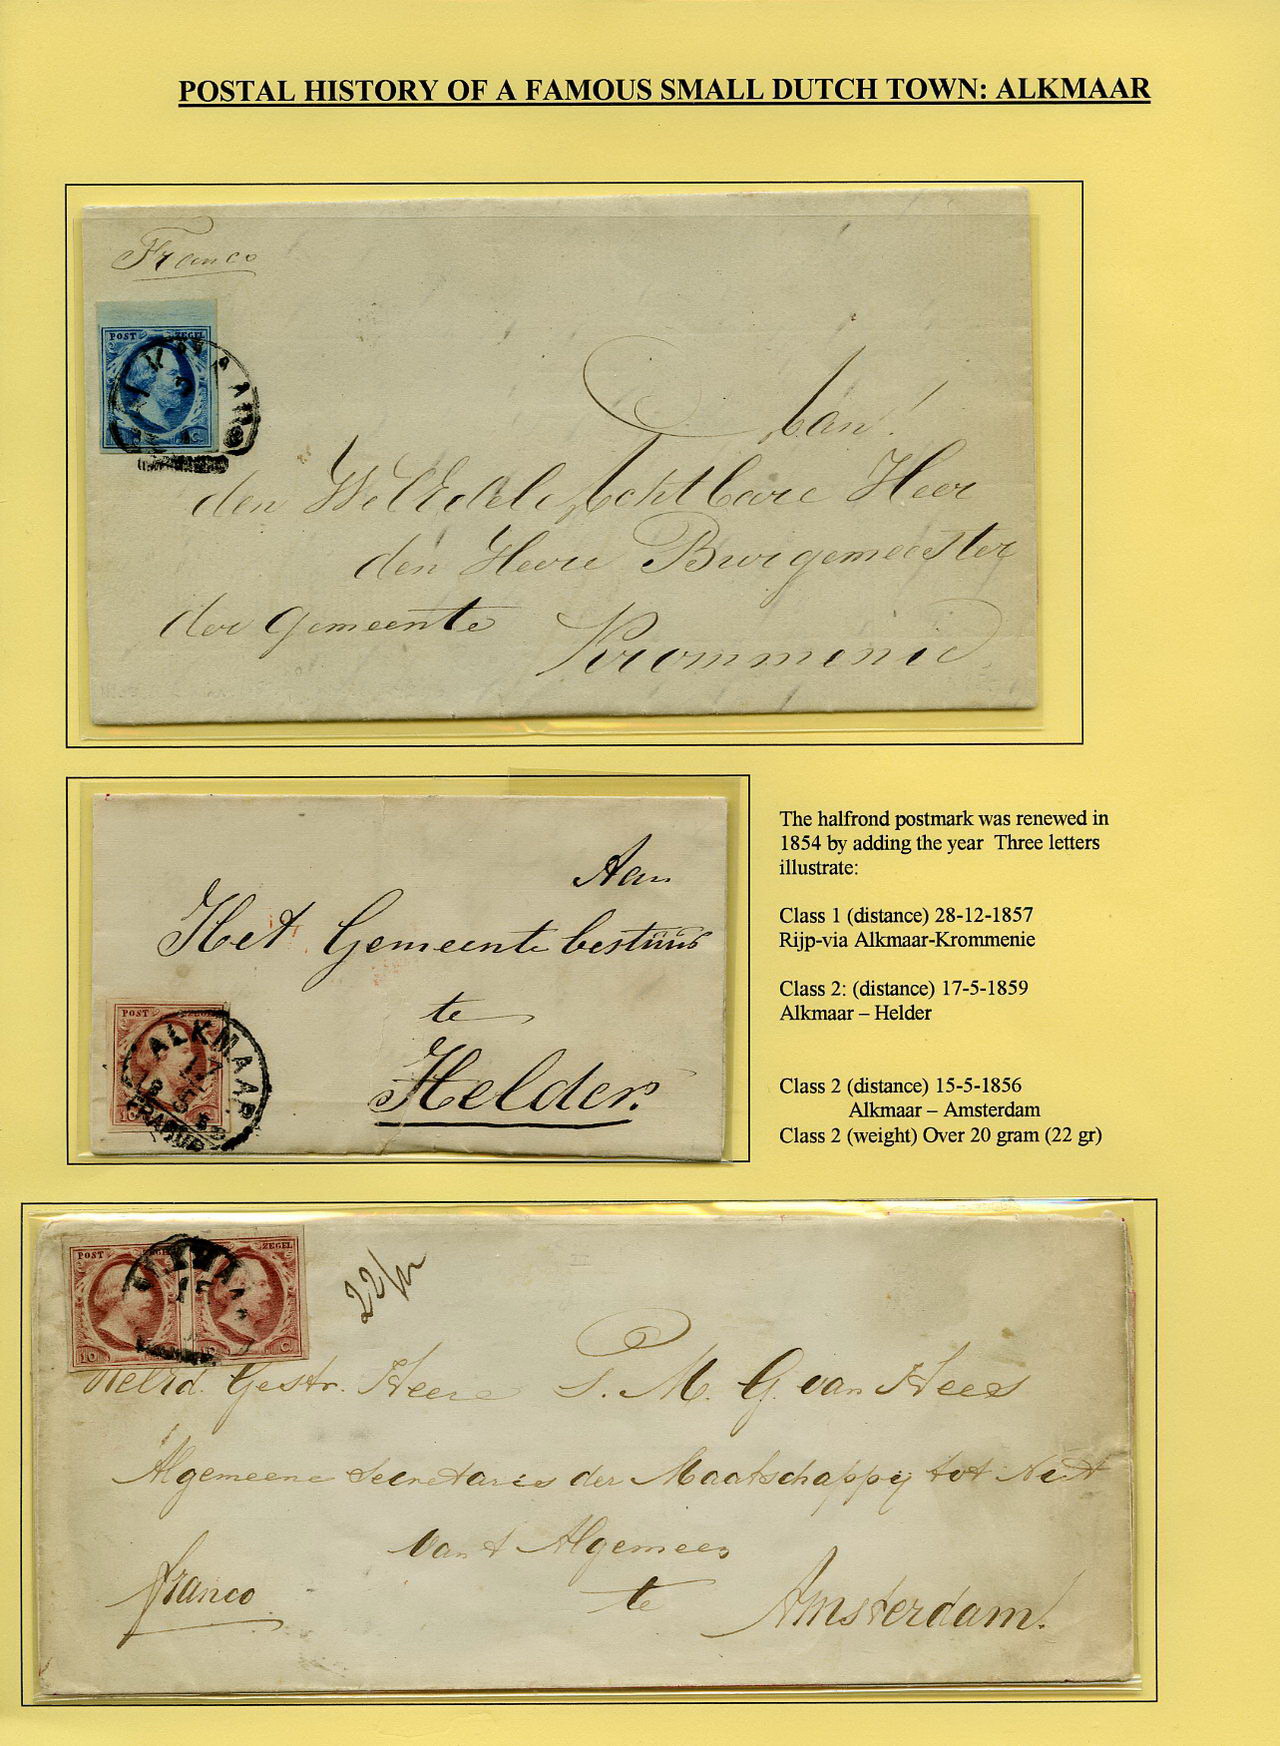 POSTAL HISTORY OF A FAMOUS SMALL DUTCH TOWN: ALKMAAR
Franco
POST ZEGEL
ALKMAAR
Aan!
den WelEdele Achtbare Heer
den Heere Burgemeester
der Gemeente Krommenie
The halfrond postmark was renewed in
1854 by adding the year Three letters
illustrate:
Class 1 (distance) 28-12-1857
Rijp-via Alkmaar-Krommenie
Class 2: (distance) 17-5-1859
Alkmaar – Helder
Class 2 (distance) 15-5-1856
Alkmaar – Amsterdam
Class 2 (weight) Over 20 gram (22 gr)
Aan
Het Gemeente bestuur
te
Helder.
POST
ALKMAAR
17
FRANCO
POST ZEGEL
ALKMAAR
15
10 C
22
WelEd. Gestr. Heere S. M. G. van Hees
Algemeene Secretaris der Maatschappij tot Nut
van t Algemeen
franco te Amsterdam!